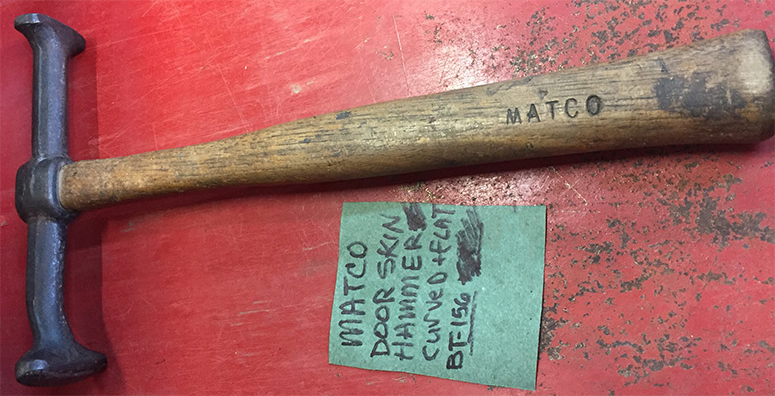 MATCO
MATCO
DOOR SKIN
HAMMER
CURVED + FLAT
BT-156